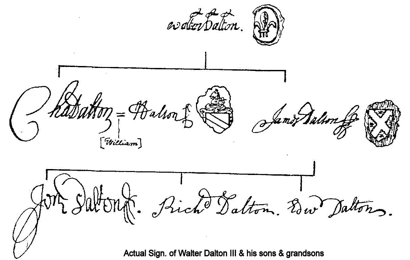 Walter Dalton.
Dalton = James Dalton
[William]
Dalton Rich^d Dalton. Edw^d Dalton.
Actual Sign. of Walter Dalton III & his sons & grandsons